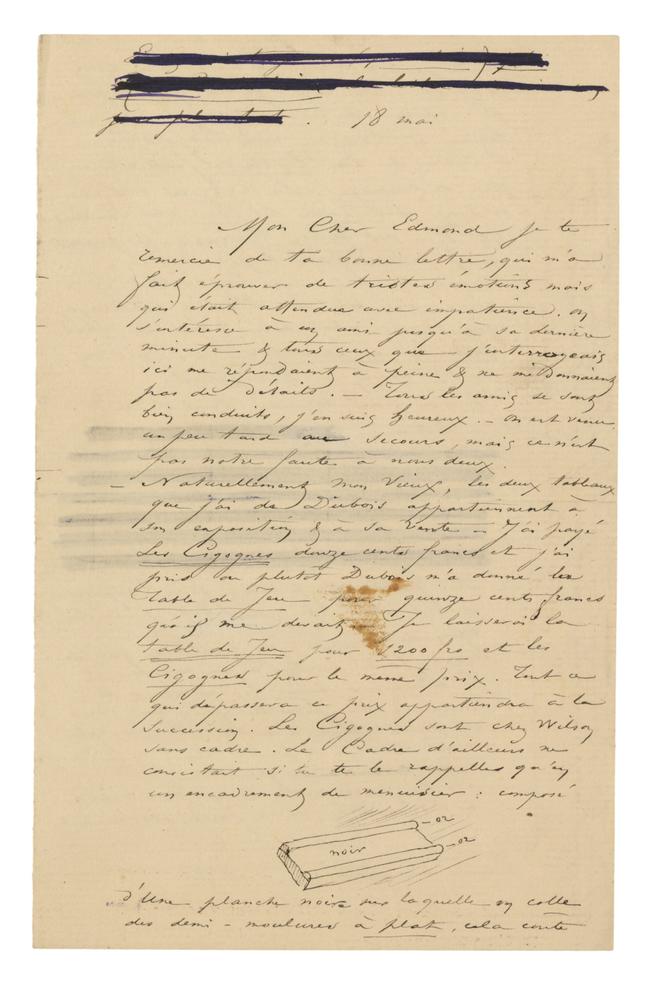 18 mai
Mon Cher Edmond je te
remercie de ta bonne lettre, qui m'a
fait éprouver de tristes émotions mais
qui était attendue avec impatience. on
s'intéresse à un ami jusqu'à sa dernière
minute & tous ceux que j'interrogeais
ici me répondaient à peine & ne me donnaient
pas de détails. — Tous les amis se sont
bien conduits, j'en suis heureux. — on est venu
un peu tard au secours, mais ce n'est
pas notre faute à nous deux.
— Naturellement mon vieux, les deux tableaux
que j'ai de Dubois appartiennent à
son exposition & à sa vente — J'ai payé
Les Cigognes douze cents francs et j'ai
pris ou plutôt Dubois m'a donné la
Table de Jeu pour quinze cents francs
qu'il me devait — Je laisserai la
table de Jeu pour 1200 frs et les
Cigognes pour le même prix. Tout ce
qui dépassera ce prix appartiendra à la
succession. Les Cigognes sont chez Wilson
sans cadre. Le Cadre d'ailleurs ne
consistait si tu te le rappelles qu'en
un encadrement de menuisier : composé
— or
noir
— or
d'une planche noire sur laquelle on colle
des demi-moulures à plat, cela coûte